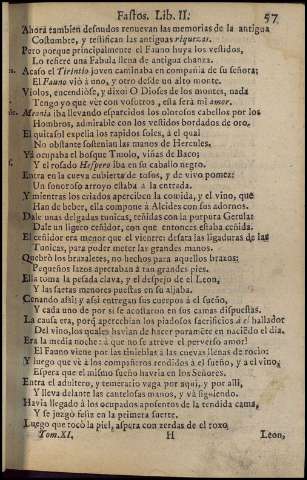 Fastos. Lib. II. 57
Ahorà tambien desnudos renuevan las memorias de la antigua
Costumbre, y testifican las antiguas riquezas.
Pero porque principalmente el Fauno huya los vestidos,
Lo refiere una Fabula llena de antigua chanza.
Acaso el Tirintio joven caminaba en compañia de su señora;
El Fauno viò à uno, y otro desde un alto monte.
Violos, encendiòse, y dixo: O Dioses de los montes, nada
Tengo yo que vèr con vosotros, esta serà mi amor.
Meonia iba llevando esparcidos los olorosos cabellos por los
Hombros, admirable con los vestidos bordados de oro.
El quitasol expelia los rapidos soles, à el qual
No obstante sostenian las manos de Hercules.
Yà ocupaba el bosque Tmolo, viñas de Baco;
Y el rosado Hespero iba en su caballo negro.
Entra en la cueva cubierta de tofos, y de vivo pomez:
Un sonoroso arroyo estaba à la entrada.
Y mientras los criados aperciben la comida, y el vino, que
Han de beber, ella compone à Alcides con sus adornos.
Dale unas delgadas tunicas, teñidas con la purpura Getula:
Dale un ligero ceñidor, con que entonces estaba ceñida.
El ceñidor era menor que el vientre: desata las ligaduras de las
Tunicas, para poder meter las grandes manos.
Quebrò los brazaletes, no hechos para aquellos brazos;
Pequeños lazos apretaban à tan grandes pies.
Ella toma la pesada clava, y el despejo de el Leon,
Y las saetas menores puestas en su aljaba.
Cenando assi; y assi entregan sus cuerpos à el sueño,
Y cada uno de por si se acostaron en sus camas dispuestas.
La causa era, porq̃ apercebian los piadosos sacrificios à el hallador
Del vino, los quales havian de hacer puramẽte en naciẽdo el dia.
Era la media noche: à que no se atreve el perverso amor!
El Fauno viene por las tinieblas à las cuevas llenas de rocìo:
Y luego que vè à los compañeros rendidos à el sueño, y à el vino,
Espera que el mismo sueño havria en los Señores.
Entra el adultero, y temerario vaga por aqui, y por alli,
Y lleva delante las cautelosas manos, y và siguiendo.
Havia llegado à los ocupados aposentos de la tendida cama,
Y se juzgò felìz en la primera suerte.
Luego que tocò la piel, aspera con zerdas de el roxo
Tom. XI. H Leon,